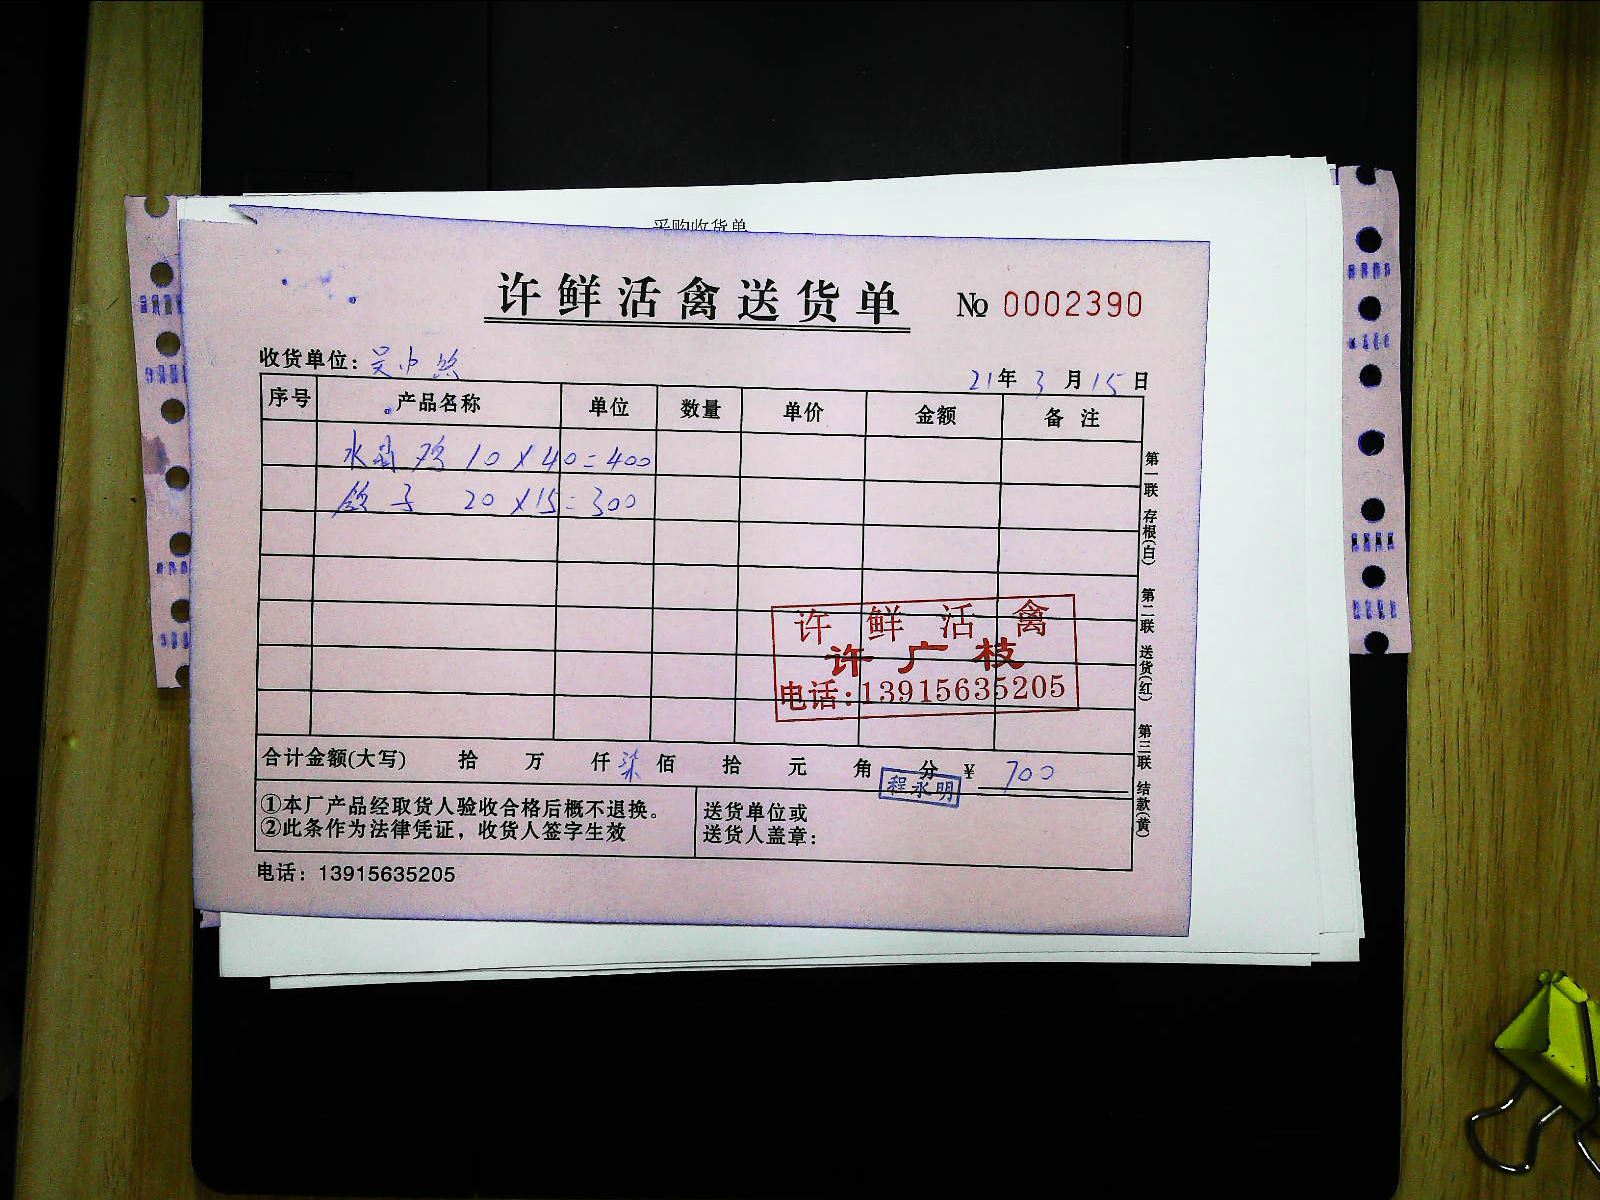 采购收货单
许鲜活禽送货单 № 0002390
收货单位: 吴中
21年 3月 15日
序号 产品名称 单位 数量 单价 金额 备注
水 鸡 10 X 40 = 400
鸽子 20 X 15 = 300
第一联 存根(白) 第二联 送货(红) 第三联 结款(黄)
许鲜活禽
许广枝
电话:13915635205
合计金额(大写) 拾 万 仟 柒佰 拾 元 角 分 ¥ 700
程永明
①本厂产品经取货人验收合格后概不退换。
②此条作为法律凭证，收货人签字生效
送货单位或
送货人盖章:
电话: 13915635205